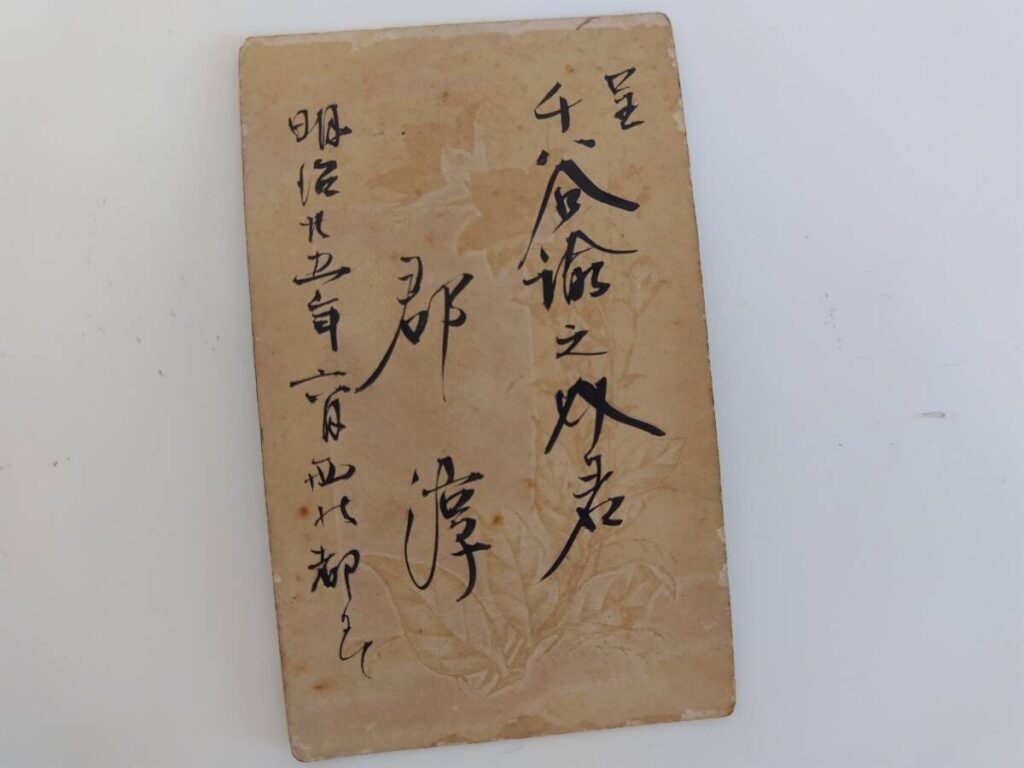 呈
千谷諭之君
郡 淳
明治廿五年六月 都ニテ